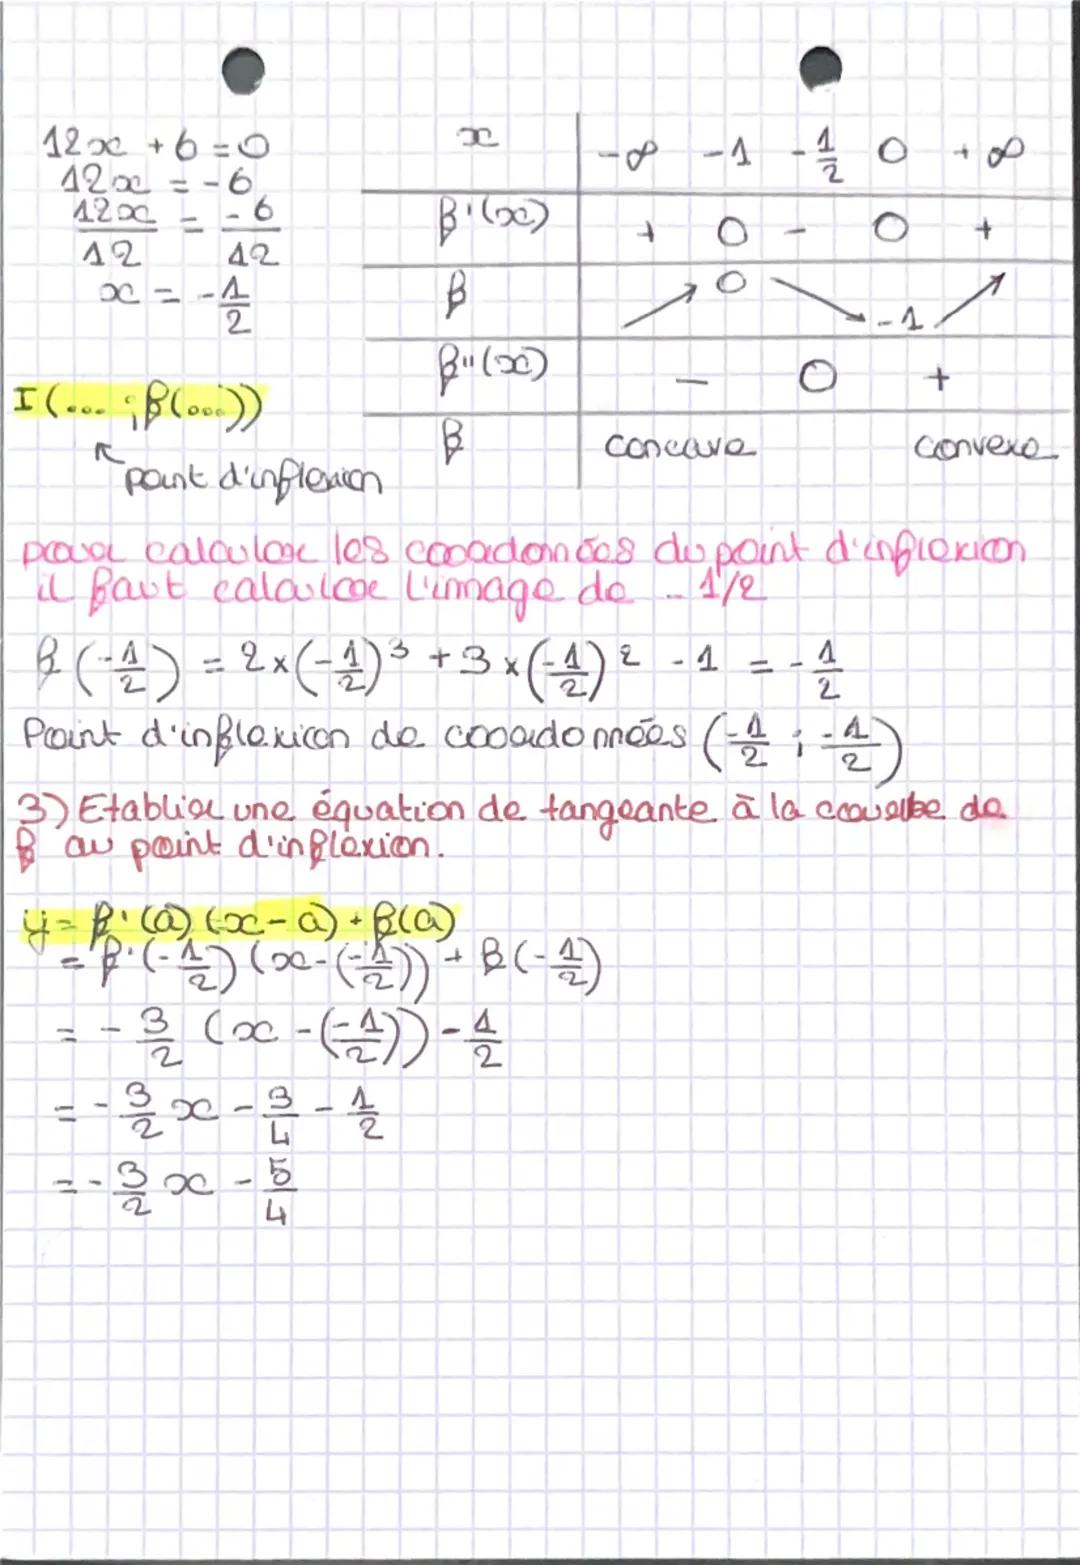 12x + 6 = 0
12x = -6
12x/12 = -6/12
x = -1/2
x | -∞ -1 -1/2 0 +∞
f'(x) | + 0 - 0 +
f | ↗ 0 ↘ -1 ↗
f''(x) | - 0 +
f | concave convexe
I(... ; f(...))
↖ point d'inflexion
pour calculer les coordonnées du point d'inflexion
il faut calculer l'image de -1/2
f(-1/2) = 2×(-1/2)³ + 3×(-1/2)² - 1 = -1/2
Point d'inflexion de coordonnées (-1/2 ; -1/2)
3) Etablir une équation de tangeante à la courbe de
f au point d'inflexion.
y = f'(a) (x-a) + f(a)
= f'(-1/2) (x-(-1/2)) + f(-1/2)
= -3/2 (x-(-1/2)) - 1/2
= -3/2 x - 3/4 - 1/2
= -3/2 x - 5/4